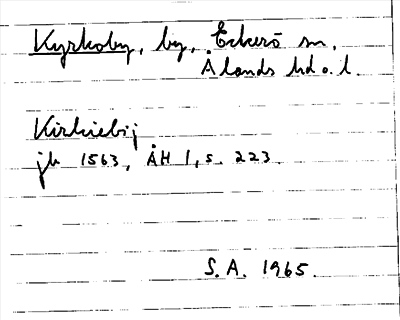 Kyrkoby, by, Eckerö sn,
Ålands hd o. l.
Kirkiebij
jb 1563, ÅH 1, s. 223
S.A. 1965.